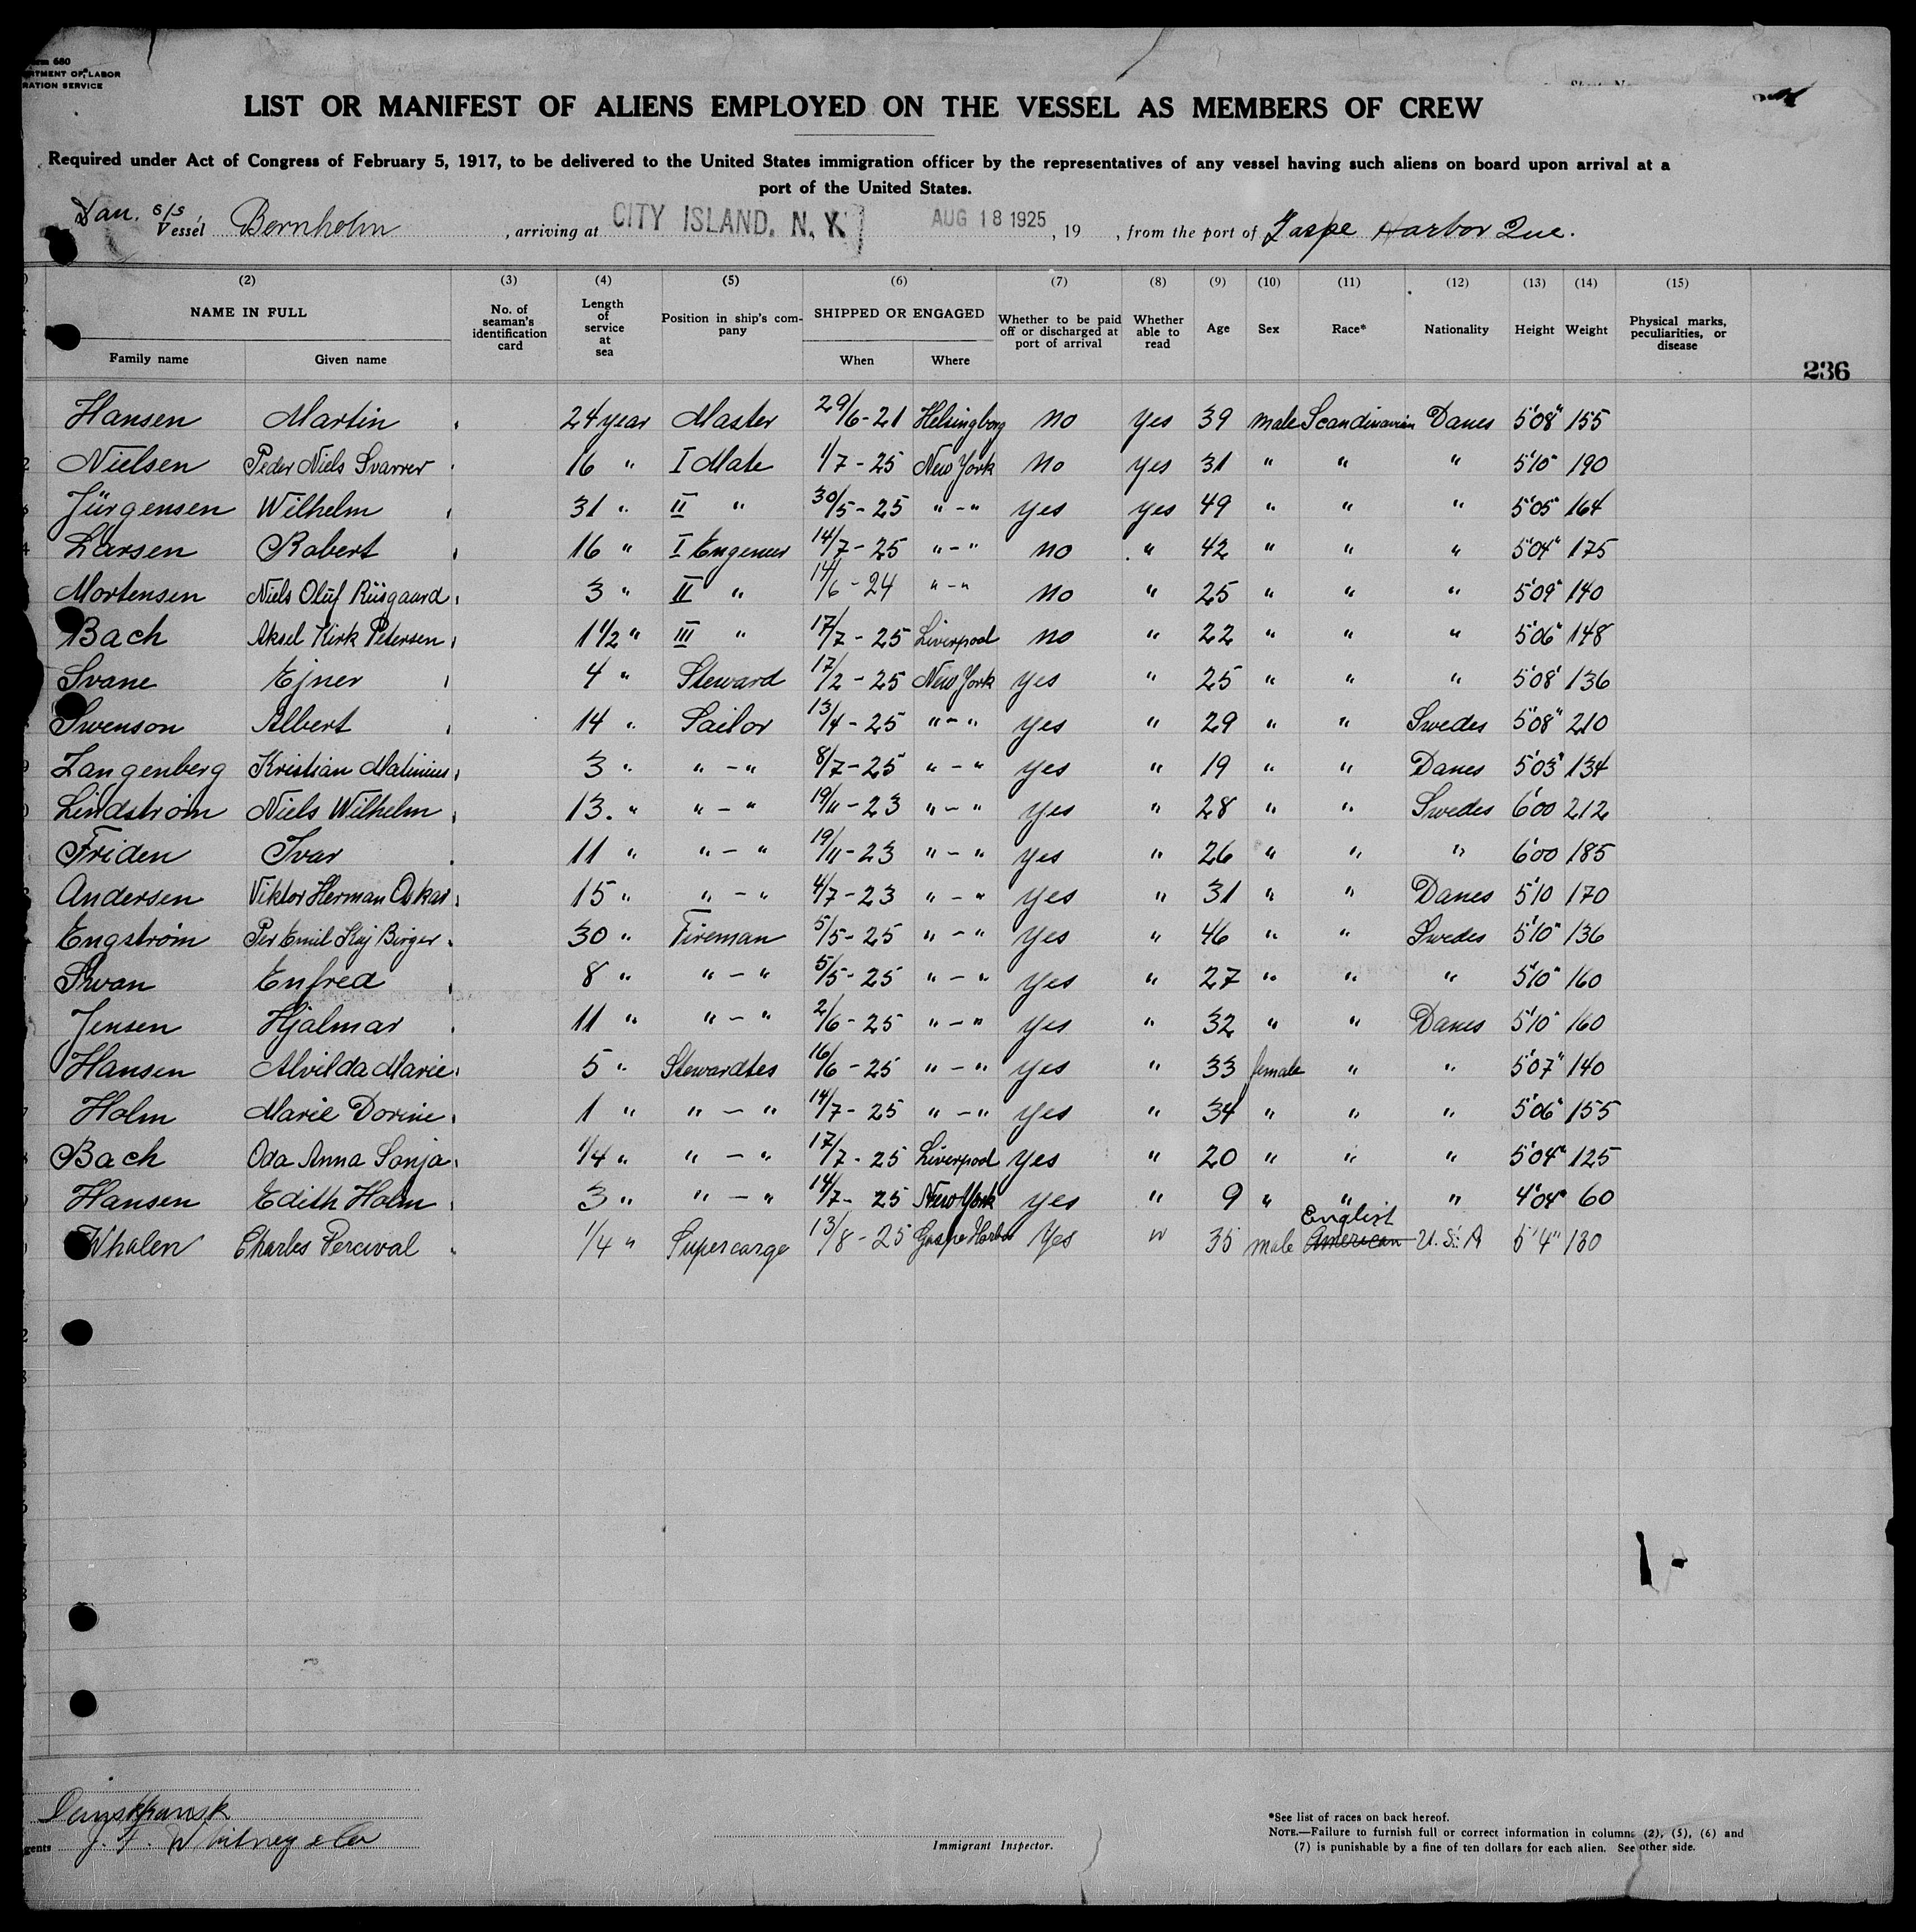 Form 680
RTMENT OF LABOR
RATION SERVICE
LIST OR MANIFEST OF ALIENS EMPLOYED ON THE VESSEL AS MEMBERS OF CREW
Required under Act of Congress of February 5, 1917, to be delivered to the United States immigration officer by the representatives of any vessel having such aliens on board upon arrival at a
port of the United States.
Dan. S/S, Vessel Bornholm, arriving at CITY ISLAND, N. Y. AUG 18 1925, 19 , from the port of Gaspe Harbor Que.
(2) (3) (4) (5) (6) (7) (8) (9) (10) (11) (12) (13) (14) (15)
NAME IN FULL No. of seaman's identification card Length of service at sea Position in ship's company SHIPPED OR ENGAGED Whether to be paid off or discharged at port of arrival Whether able to read Age Sex Race* Nationality Height Weight Physical marks, peculiarities, or disease
Family name Given name When Where
236
Hansen Martin 24 year Master 29/6-21 Helsingborg no yes 39 male Scandinavian Danes 5'08" 155
Nielsen Peder Niels Svarrer 16 " I Mate 1/7-25 New York no yes 31 " " " 5'10" 190
Jürgensen Wilhelm 31 " II " 30/5-25 "-" yes yes 49 " " " 5'05" 164
Larsen Robert 16 " I Engeneer 14/7-25 "-" no " 42 " " " 5'04" 175
Mortensen Niels Oluf Riisgaard 3 " II " 14/6-24 "-" no " 25 " " " 5'09" 140
Bach Aksel Kirk Petersen 1 1/2 " III " 17/7-25 Liverpool no " 22 " " " 5'06" 148
Svane Ejner 4 " Steward 17/2-25 New York yes " 25 " " " 5'08" 136
Swenson Albert 14 " Sailor 13/4-25 "-" yes " 29 " " Swedes 5'08" 210
Langenberg Kristian Matinius 3 " "-" 8/7-25 "-" yes " 19 " " Danes 5'03" 134
Lindstrøm Niels Wilhelm 13 " "-" 19/11-23 "-" yes " 28 " " Swedes 6'00 212
Friden Ivar 11 " "-" 19/11-23 "-" yes " 26 " " " 6'00 185
Andersen Viktor Herman Oskar 15 " "-" 4/7-23 "-" yes " 31 " " Danes 5'10 170
Engstrøm Per Emil Kaj Birger 30 " Fireman 5/5-25 "-" yes " 46 " " Swedes 5'10" 136
Swan Enfred 8 " "-" 5/5-25 "-" yes " 27 " " " 5'10" 160
Jensen Hjalmar 11 " "-" 2/6-25 "-" yes " 32 " " Danes 5'10" 160
Hansen Alvilda Marie 5 " Stewardtes 16/6-25 "-" yes " 33 female " " 5'07" 140
Holm Marie Dorine 1 " "-" 14/7-25 "-" yes " 34 " " " 5'06" 155
Bach Oda Anna Sonja 1/4 " "-" 17/7-25 Liverpool yes " 20 " " " 5'04" 125
Hansen Edith Holm 3 " "-" 14/7-25 New York yes " 9 " " " 4'04" 60
English
Whalen Charles Percival 1/4 " Supercargo 13/8-25 Gaspe Harbor Yes " 35 male American U.S.A 5'4" 130
J. F. Whitney & Co
gents
Immigrant Inspector.
*See list of races on back hereof.
NOTE.—Failure to furnish full or correct information in columns (2), (5), (6) and
(7) is punishable by a fine of ten dollars for each alien. See other side.